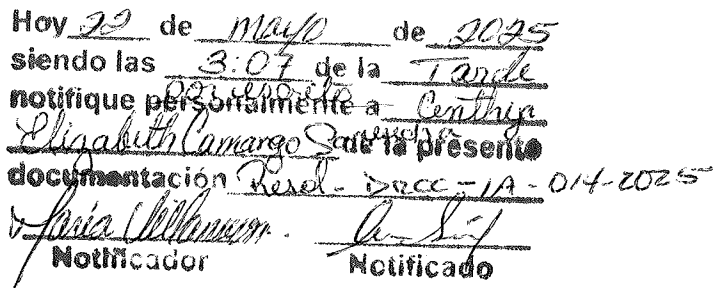 Hoy 22 de mayo de 2025
siendo las 3:07 de la Tarde
por escrito
notifique personalmente a Centhya
Elizabeth Camargo de la presente
documentación Resol- DRCC-IA-014-2025
Notificador Notificado